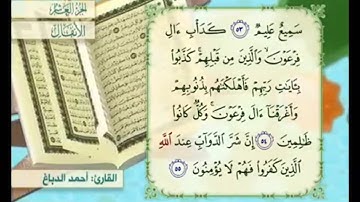 الجزء العاشر
الأنفال
سَمِيعٌ عَلِيمٌ ٥٣ كَدَأْبِ ءَالِ
فِرْعَوْنَ وَٱلَّذِينَ مِن قَبْلِهِمْ كَذَّبُوا۟
بِـَٔايَٰتِ رَبِّهِمْ فَأَهْلَكْنَٰهُم بِذُنُوبِهِمْ
وَأَغْرَقْنَآ ءَالَ فِرْعَوْنَ وَكُلٌّ كَانُوا۟
ظَٰلِمِينَ ٥٤ إِنَّ شَرَّ ٱلدَّوَآبِّ عِندَ ٱللَّهِ
ٱلَّذِينَ كَفَرُوا۟ فَهُمْ لَا يُؤْمِنُونَ ٥٥
القارئ: أحمد الدباغ